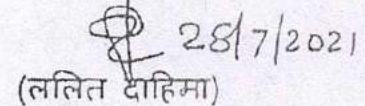 28/7/2021
(ललित दाहिमा)